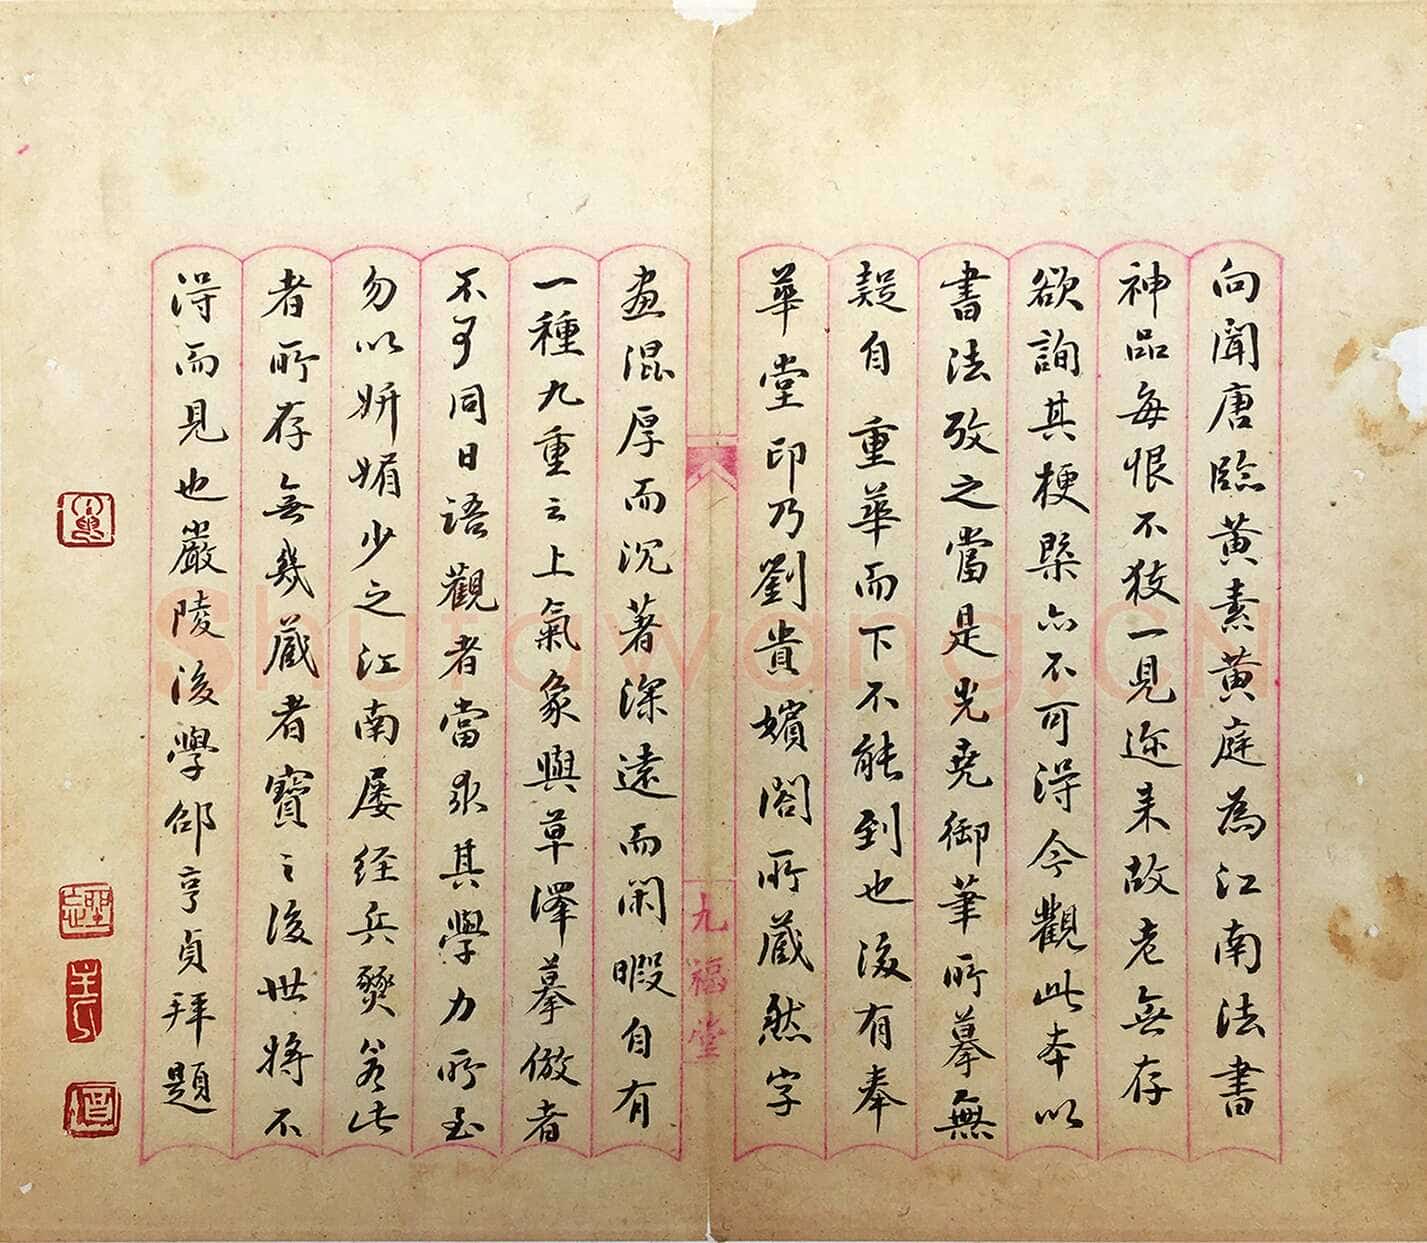 向聞唐臨黃素黃庭為江南法書
神品每恨不獲一見邇来故老無存
欲詢其梗槩亦不可得今觀此本以
書法攷之當是光堯御筆所摹無
疑自 重華而下不能到也後有奉
華堂印乃劉貴嬪閤所蔵然字
畫混厚而沉著深遠而閑暇自有
一種九重之上氣象與草澤摹倣者
不可同日語觀者當求其學力所至
勿以妍媚少之江南屡经兵燹若此
者所存無幾蔵者寶之後世將不
得而見也嚴陵後學邵亨貞拜題
九福堂
Shufawang.CN